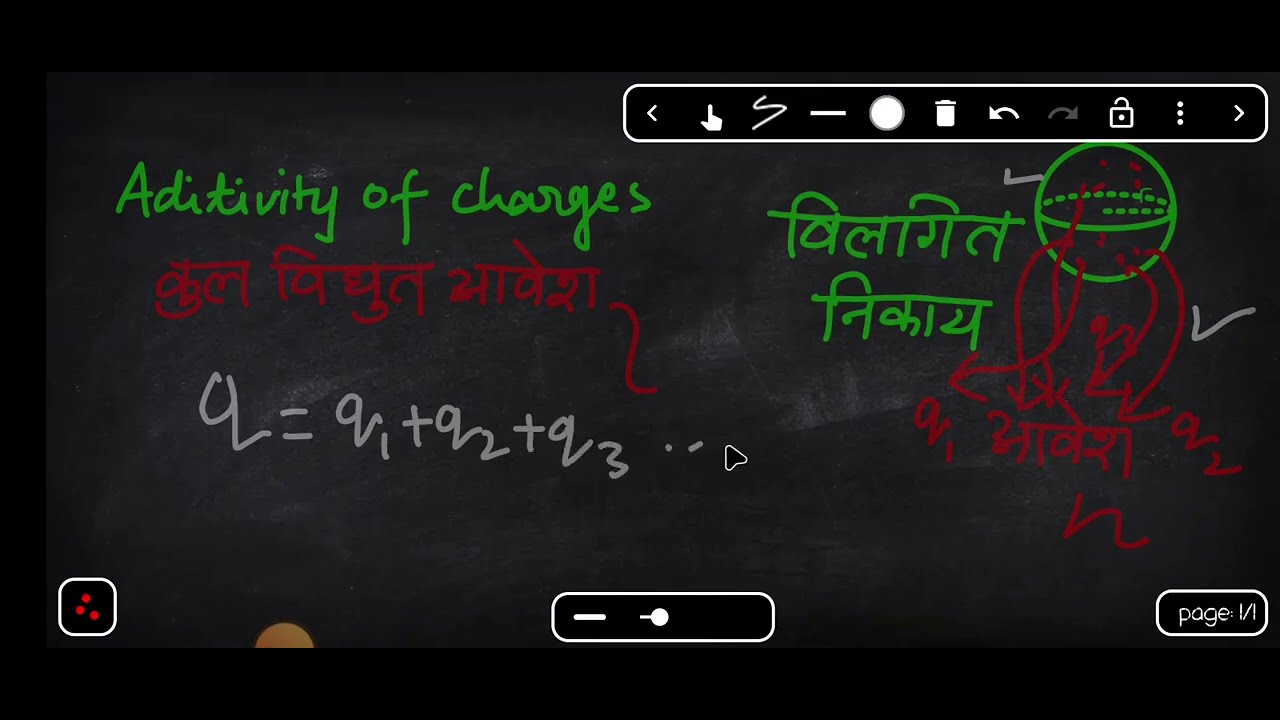 Aditivity of charges
कुल विद्युत आवेश
q = q₁ + q₂ + q₃ ...
विलगित
निकाय
q₁ आवेश q₂
n
page: 1/1